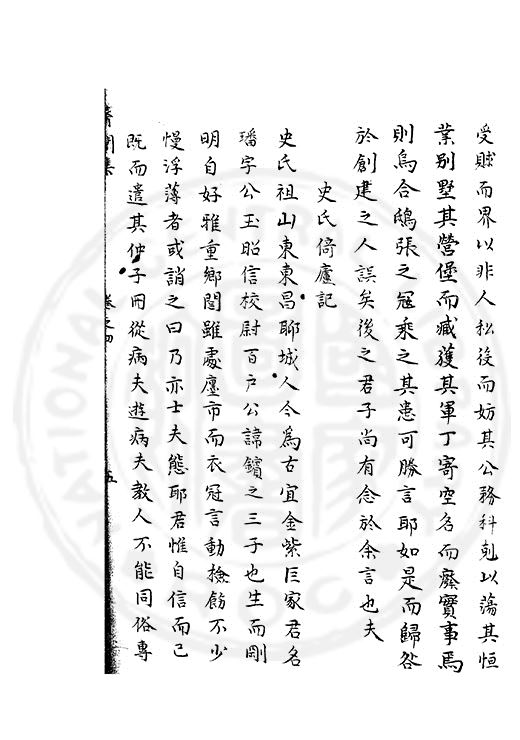 受賕而畀以非人私役而妨其公務科剋以蕩其恒
業別墅其營堡而臧獲其軍丁寄空名而廢實事焉
則烏合鴟張之寇乘之其患可勝言耶如是而歸咎
於創建之人誤矣後之君子尚有念於余言也夫
史氏倚廬記
史氏祖山東東昌聊城人今為古宜金紫巨家君名
璠字公玉昭信校尉百戶公諱鑌之三子也生而剛
明自好雅重鄉閭雖處廛市而衣冠言動檢飭不少
慢浮薄者或誚之曰乃亦士夫態耶君惟自信而已
既而遣其仲子冊從病夫遊病夫教人不能同俗專
集 卷之四 五
NATIONAL